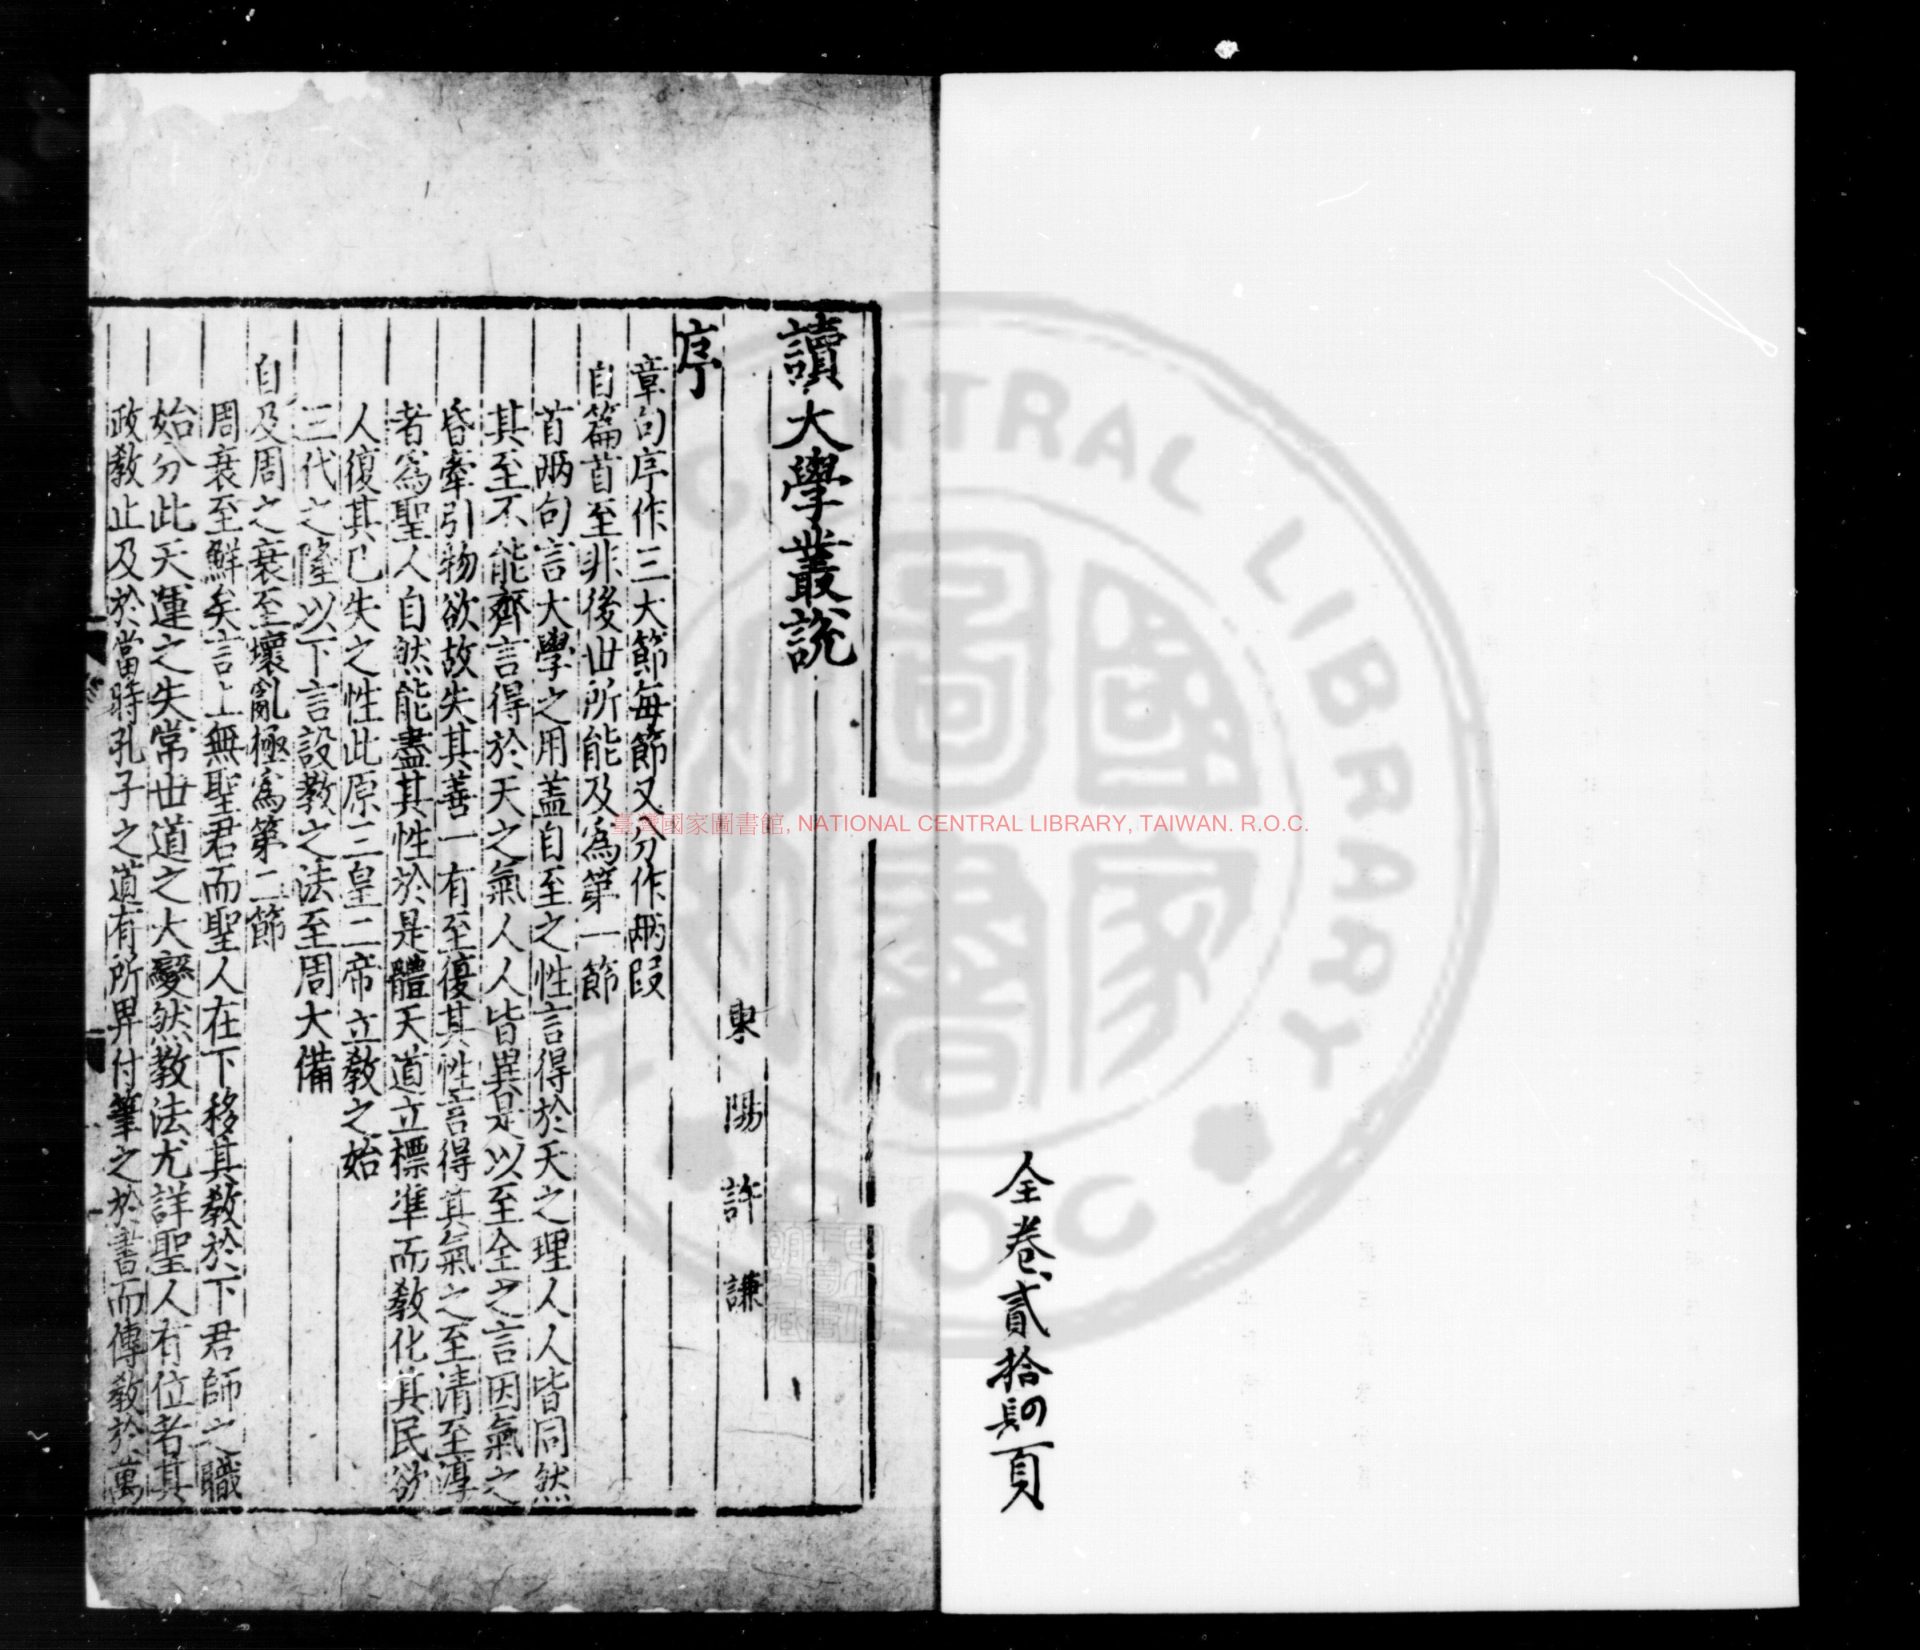 全卷貳拾肆頁
讀大學叢說
東陽許謙
序
章句序作三大節每節又分作兩段
自篇首至非後世所能及爲第一節
首兩句言大學之用盖自至之性言得於天之理人人皆同然
其至不能齊言得於天之氣人人皆異是以至全之言因氣之
昏牽引物欲故失其善一有至復其性言得其氣之至清至淳
者爲聖人自然能盡其性於是體天道立標準而教化其民欲
人復其已失之性此原三皇二帝立教之始
三代之隆以下言設教之法至周大備
自及周之衰至壞亂極爲第二節
周衰至鮮矣言上無聖君而聖人在下移其教於下君師之職
始分此天運之失常世道之大變然教法尤詳聖人有位者其
政教止及於當時孔子之道有所畀付筆之於書而傳教於萬
臺灣國家圖書館, NATIONAL CENTRAL LIBRARY, TAIWAN. R.O.C.
國家圖書
CENTRAL LIBRARY
R.O.C